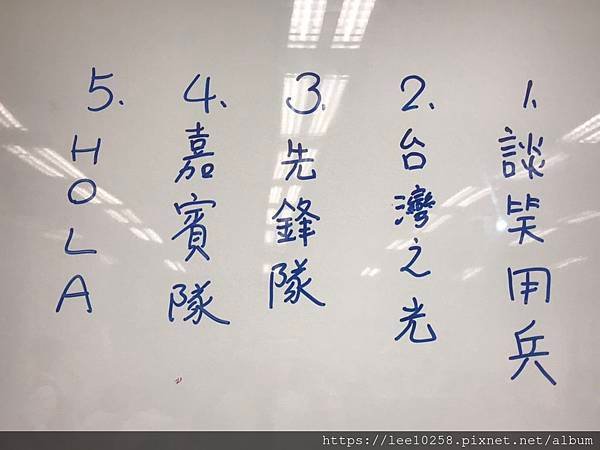 1. 談笑用兵
2. 台灣之光
3. 先鋒隊
4. 嘉賓隊
5. HOLA
https://lee10258.pixnet.net/album